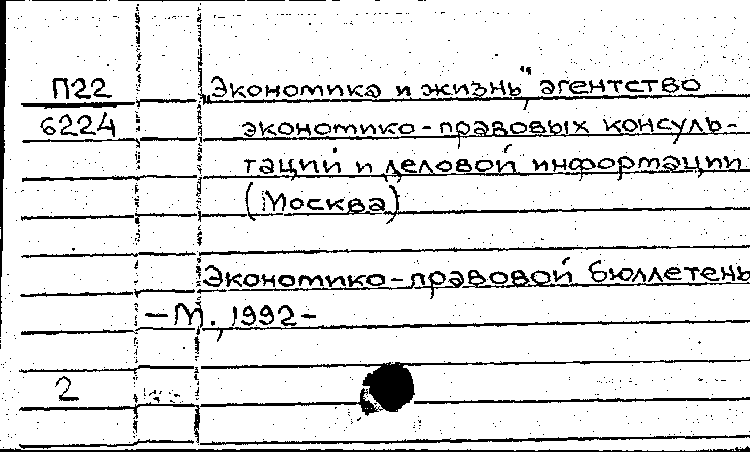 П22 „Экономика и жизнь", агентство
6224 экономико-правовых консуль-
таций и деловой информации
(Москва)
Экономико-правовой бюллетень
-М., 1992-
2